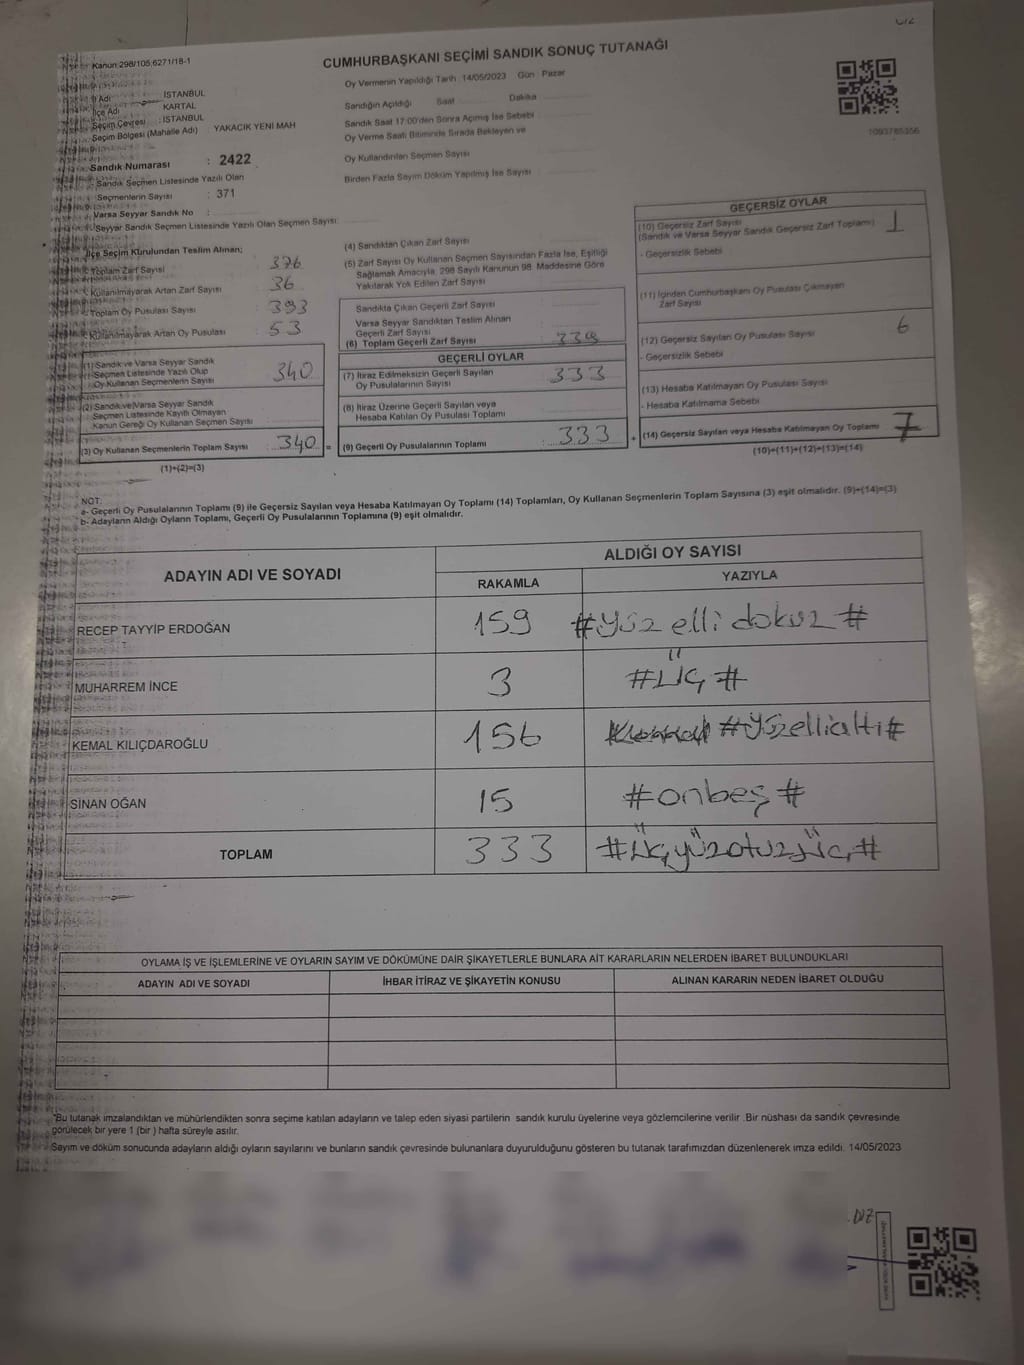 Kanun:298/105;6271/18-1
CUMHURBAŞKANI SEÇİMİ SANDIK SONUÇ TUTANAĞI
İl Adı : İSTANBUL
İlçe Adı : KARTAL
Seçim Çevresi : İSTANBUL
Seçim Bölgesi (Mahalle Adı) YAKACIK YENİ MAH
Sandık Numarası : 2422
Sandık Seçmen Listesinde Yazılı Olan
Seçmenlerin Sayısı : 371
Varsa Seyyar Sandık No :
Seyyar Sandık Seçmen Listesinde Yazılı Olan Seçmen Sayısı:
Oy Vermenin Yapıldığı Tarih : 14/05/2023 Gün : Pazar
Sandığın Açıldığı Saat Dakika
Sandık Saat 17:00'den Sonra Açımış İse Sebebi
Oy Verme Saati Bitiminde Sırada Bekleyen ve
Oy Kullandırılan Seçmen Sayısı
Birden Fazla Sayım Döküm Yapılmış İse Sayısı :
1093785356
İlçe Seçim Kurulundan Teslim Alınan;
Toplam Zarf Sayısı 376
Kullanılmayarak Artan Zarf Sayısı 36
Toplam Oy Pusulası Sayısı 393
Kullanılmayarak Artan Oy Pusulası 53
(1) Sandık ve Varsa Seyyar Sandık
Seçmen Listesinde Yazılı Olup
Oy Kullanan Seçmenlerin Sayısı 340
(2) Sandık ve Varsa Seyyar Sandık
Seçmen Listesinde Kayıtlı Olmayan
Kanun Gereği Oy Kullanan Seçmen Sayısı
(3) Oy Kullanan Seçmenlerin Toplam Sayısı : 340 =
(1)+(2)=(3)
(4) Sandıktan Çıkan Zarf Sayısı
(5) Zarf Sayısı Oy Kullanan Seçmen Sayısından Fazla İse, Eşitliği
Sağlamak Amacıyla, 298 Sayılı Kanunun 98. Maddesine Göre
Yakılarak Yok Edilen Zarf Sayısı
Sandıkta Çıkan Geçerli Zarf Sayısı
Varsa Seyyar Sandıktan Teslim Alınan
Geçerli Zarf Sayısı
(6) Toplam Geçerli Zarf Sayısı : 339
GEÇERLİ OYLAR
(7) İtiraz Edilmeksizin Geçerli Sayılan
Oy Pusulalarının Sayısı 333
(8) İtiraz Üzerine Geçerli Sayılan veya
Hesaba Katılan Oy Pusulası Toplamı
(9) Geçerli Oy Pusulalarının Toplamı : 333 +
GEÇERSİZ OYLAR
(10) Geçersiz Zarf Sayısı
(Sandık ve Varsa Seyyar Sandık Geçersiz Zarf Toplamı) 1
- Geçersizlik Sebebi
(11) İçinden Cumhurbaşkanı Oy Pusulası Çıkmayan
Zarf Sayısı
(12) Geçersiz Sayılan Oy Pusulası Sayısı 6
- Geçersizlik Sebebi
(13) Hesaba Katılmayan Oy Pusulası Sayısı
- Hesaba Katılmama Sebebi
(14) Geçersiz Sayılan veya Hesaba Katılmayan Oy Toplamı 7
(10)+(11)+(12)+(13)=(14)
NOT:
a- Geçerli Oy Pusulalarının Toplamı (9) ile Geçersiz Sayılan veya Hesaba Katılmayan Oy Toplamı (14) Toplamları, Oy Kullanan Seçmenlerin Toplam Sayısına (3) eşit olmalıdır. (9)+(14)=(3)
b- Adayların Aldığı Oyların Toplamı, Geçerli Oy Pusulalarının Toplamına (9) eşit olmalıdır.
ADAYIN ADI VE SOYADI
ALDIĞI OY SAYISI
RAKAMLA YAZIYLA
RECEP TAYYİP ERDOĞAN 159 #yüz elli dokuz#
MUHARREM İNCE 3 #üç#
KEMAL KILIÇDAROĞLU 156 #yüzellialtı#
SİNAN OĞAN 15 #onbeş#
TOPLAM 333 #üçyüzotuzüç#
OYLAMA İŞ VE İŞLEMLERİNE VE OYLARIN SAYIM VE DÖKÜMÜNE DAİR ŞİKAYETLERLE BUNLARA AİT KARARLARIN NELERDEN İBARET BULUNDUKLARI
ADAYIN ADI VE SOYADI İHBAR İTİRAZ VE ŞİKAYETİN KONUSU ALINAN KARARIN NEDEN İBARET OLDUĞU
Bu tutanak imzalandıktan ve mühürlendikten sonra seçime katılan adayların ve talep eden siyasi partilerin sandık kurulu üyelerine veya gözlemcilerine verilir .Bir nüshası da sandık çevresinde
görülecek bir yere 1 (bir ) hafta süreyle asılır.
Sayım ve döküm sonucunda adayların aldığı oyların sayılarını ve bunların sandık çevresinde bulunanlara duyurulduğunu gösteren bu tutanak tarafımızdan düzenlenerek imza edildi. 14/05/2023